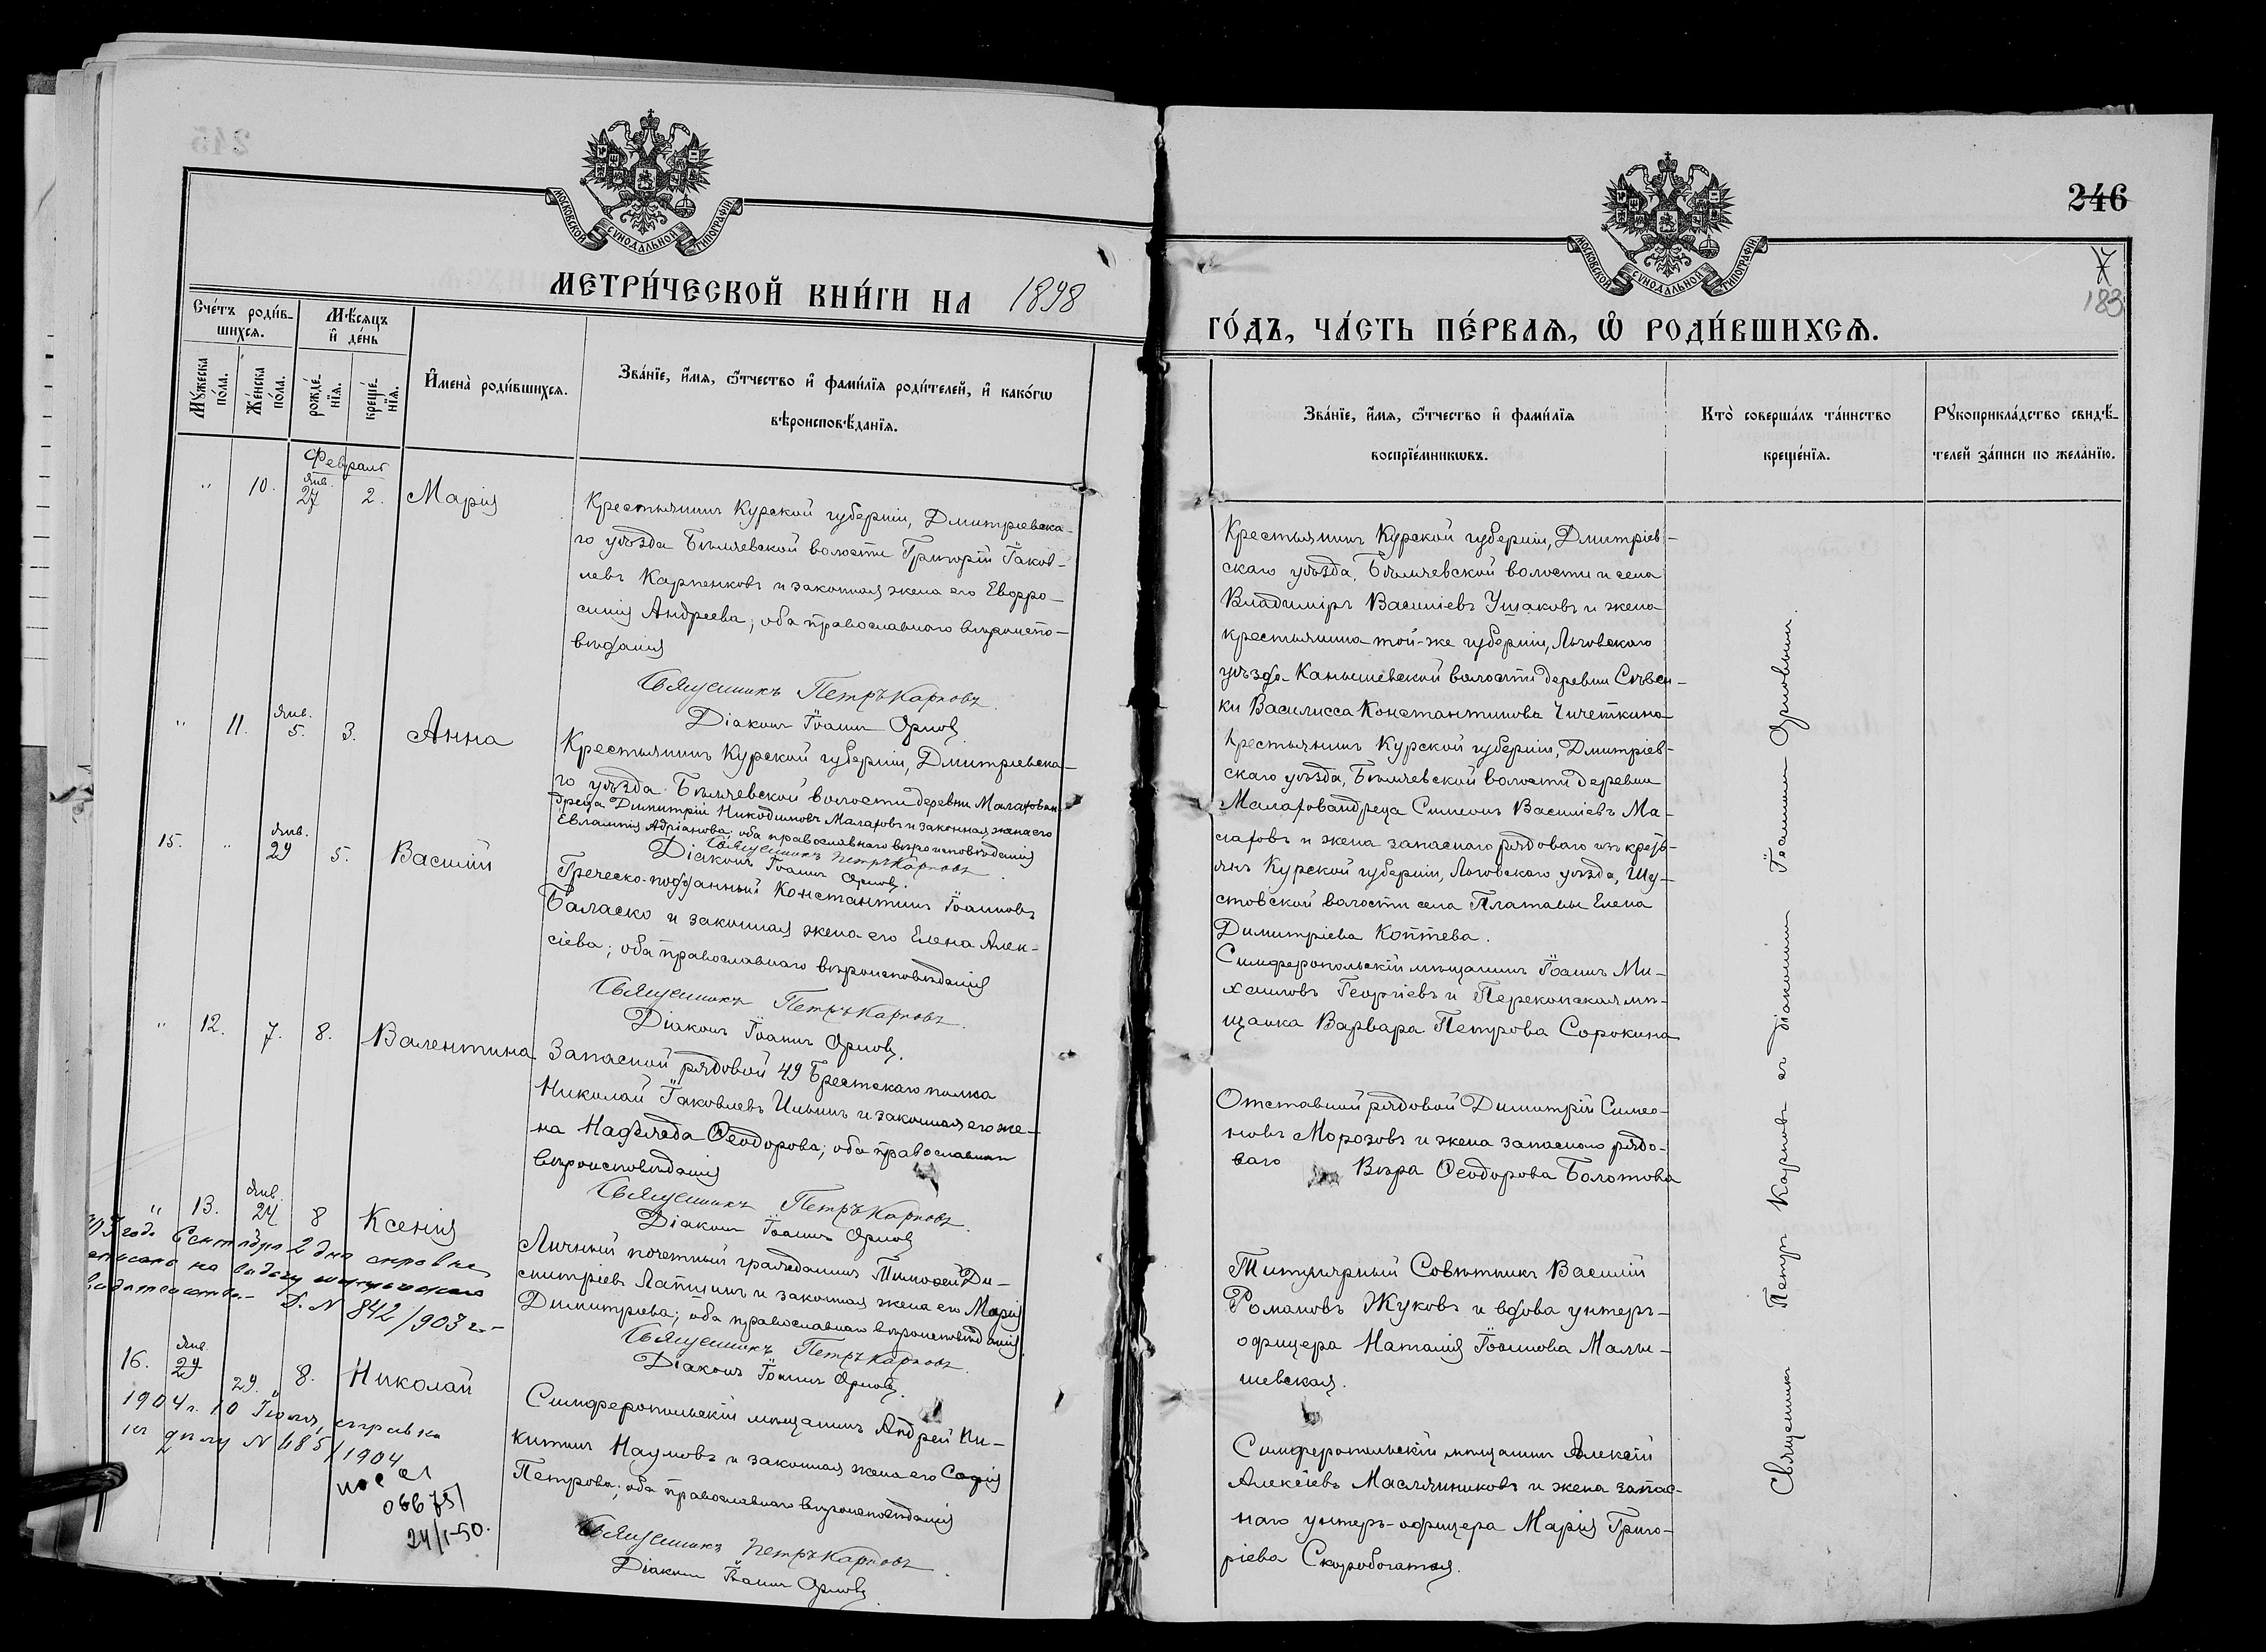 МОСКОВСКОЙ СУНОДАЛЬНОЙ ТИПОГРАФІИ
МЕТРИ́ЧЕСКОЙ КНИ́ГИ НА 1898
Сче́тъ роди́в-
шихсѧ.
Мѣ́сѧцъ
и҆ де́нь
Мꙋ́жеска
по́ла.
Же́нска
по́ла.
рожде́-
нїѧ.
креще́-
нїѧ.
И҆мена̀ роди́вшихсѧ.
Зва́нїе, и҆́мѧ, ѻ҆́тчество и҆ фами́лїѧ роди́телей, и҆ како́гѡ
вѣроисповѣ́данїѧ.
Февраль
" 10. Янв. 27 2. Марія
Крестьянинъ Курской губерніи, Дмитріевска-
го уѣзда Бѣляевской волости Григорій Іаков-
левъ Карпенковъ и законная жена его Евфро-
синія Андреева; оба православнаго вѣроиспо-
вѣданія
Священникъ Петръ Карповъ.
Діаконъ Іоаннъ Орловъ
" 11. Янв. 5. 3. Анна
Крестьянинъ Курской губерніи, Дмитріевска-
го уѣзда Бѣляевской волости деревни Малахован-
дреца Димитрій Никодимовъ Малаховъ и законная жена его
Евлампія Адріанова; оба православнаго вѣроисповѣданія
Священникъ Петръ Карповъ
Діаконъ Іоаннъ Орловъ.
15. " Янв. 29 5. Василій
Греческо-подданный Константинъ Іоанновъ
Баласко и законная жена его Елена Алек-
сіева; оба православнаго вѣроисповѣданія
Священникъ Петръ Карповъ.
Діаконъ Іоаннъ Орловъ.
" 12. 7. 8. Валентина
Запасной рядовой 49 Брестскаго полка
Николай Іаковлевъ Ильинъ и законная его же-
на Надежда Ѳеодорова; оба православнаго
вѣроисповѣданія
Священникъ Петръ Карповъ.
Діаконъ Іоаннъ Орловъ
" 13. Янв. 24 8 Ксенія
года Сентября 2 дня справка
на выдачу
Д. N 842/903 г.
Личный почетный гражданинъ Тимоѳей Ди-
митріевъ Лапшинъ и законная жена его Марія
Димитріева; оба православнаго вѣроисповѣданія
Священникъ Петръ Карповъ.
Діаконъ Іоаннъ Орловъ.
16. Янв. 29 29. 8. Николай
1904 г. 10 Іюля, справка
по дѣлу N 485/1904
066751
24/I-50.
Симферопольскій мѣщанинъ Андрей Ни-
китинъ Наумовъ и законная жена его Софія
Петрова; оба православнаго вѣроисповѣданія
Священникъ Петръ Карповъ.
Діаконъ Іоаннъ Орловъ.
246
7
183
МОСКОВСКОЙ СУНОДАЛЬНОЙ ТИПОГРАФІИ
ГО́ДЪ, ЧА́СТЬ ПЕ́РВАѦ, Ѽ РОДИ́ВШИХСѦ.
Зва́нїе, и҆́мѧ, ѻ҆́тчество и҆ фами́лїѧ
воспрїе́мникѡвъ.
Кто̀ соверша́лъ та́инство
креще́нїѧ.
Рꙋкоприкла́дство свидѣ́-
телей за́писи по жела́нїю.
Крестьянинъ Курской губерніи, Дмитріев-
скаго уѣзда, Бѣляевской волости и села
Владиміръ Василіевъ Ушаковъ и жена
крестьянина той-же губерніи, Льговскаго
уѣзда Канышевской волости деревни Сѣвен-
ки Василисса Константинова Чичеткина
Крестьянинъ Курской губерніи, Дмитріев-
скаго уѣзда, Бѣляевской волости деревни
Малаховандреца Симеонъ Василіевъ Ма-
лаховъ и жена запаснаго рядоваго изъ кресть-
янъ Курской губерніи, Льговскаго уѣзда, Шу-
стовской волости села Платавы Елена
Димитріева Коптева.
Симферопольскій мѣщанинъ Іоаннъ Ми-
хаиловъ Георгіевъ и Перекопская мѣ-
щанка Варвара Петрова Сорокина
Отставной рядовой Димитрій Симео-
новъ Морозовъ и жена запаснаго рядо-
ваго Вѣра Ѳеодорова Болотова
Титулярный Совѣтникъ Василій
Романовъ Жуковъ и вдова унтеръ-
офицера Наталія Іоаннова Малы-
шевская.
Симферопольскій мѣщанинъ Алексій
Алексіевъ Масляниковъ и жена запас-
наго унтеръ-офицера Марія Григо-
ріева Скоробогатая.
Священникъ Петръ Карповъ съ діакономъ Іоанномъ Орловымъ.